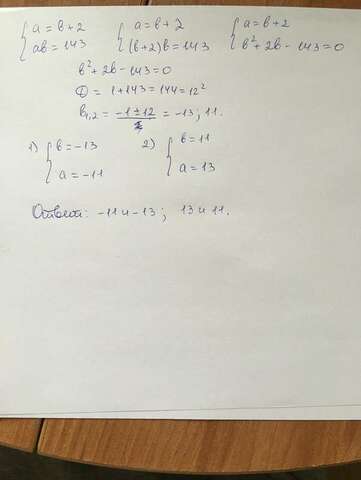 { a = b + 2 { a = b + 2 { a = b + 2
{ ab = 143 { (b+2)b = 143 { b² + 2b - 143 = 0
b² + 2b - 143 = 0
D = 1 + 143 = 144 = 12²
b₁,₂ = (-1 ± 12)/1 = -13; 11.
1) { b = -13 2) { b = 11
{ a = -11 { a = 13
Ответ: -11 и -13; 13 и 11.